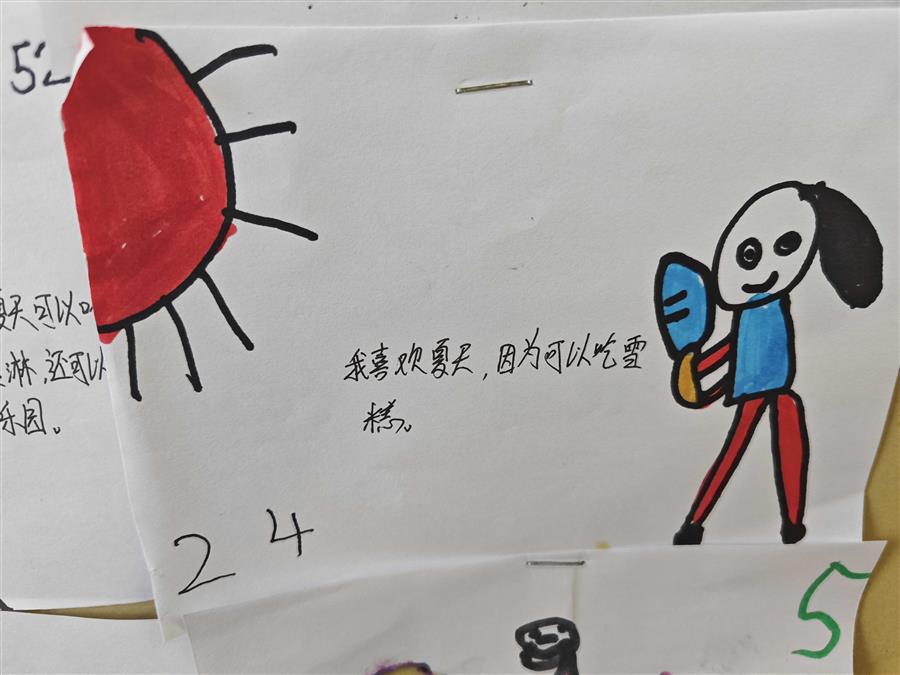 52
夏天可以吃
淋，还可以
乐园。
我喜欢夏天，因为可以吃雪
糕。
24
5